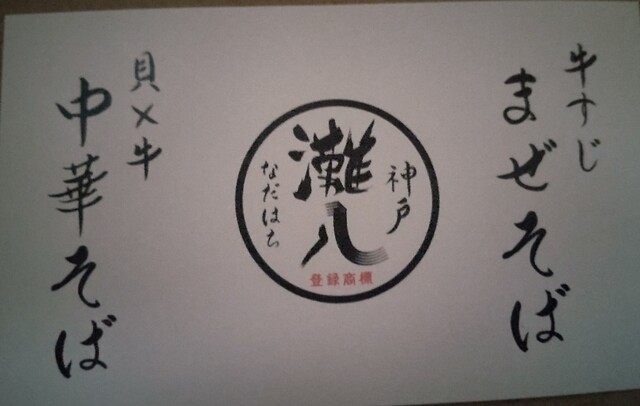 牛すじ
まぜそば
神戸
灘八
なだはち
登録商標
貝×牛
中華そば